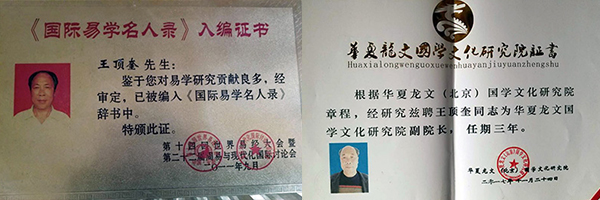 《国际易学名人录》入编证书
王顶奎 先生：
鉴于您对易学研究贡献良多，经
审定，已被编入《国际易学名人录》
辞书中。
特颁此证。
第十四届世界易经大会暨
第二十二届周易与现代化国际讨论会
二〇一一年九月
華夏龍文國學文化研究院証書
Huaxialongwenguoxuewenhuayanjiuyuanzhengshu
根据华夏龙文（北京）国学文化研究院
章程，经研究兹聘王顶奎同志为华夏龙文国
学文化研究院副院长，任期三年。
华夏龙文（北京）国学文化研究院
二〇一七年十一月二十四日